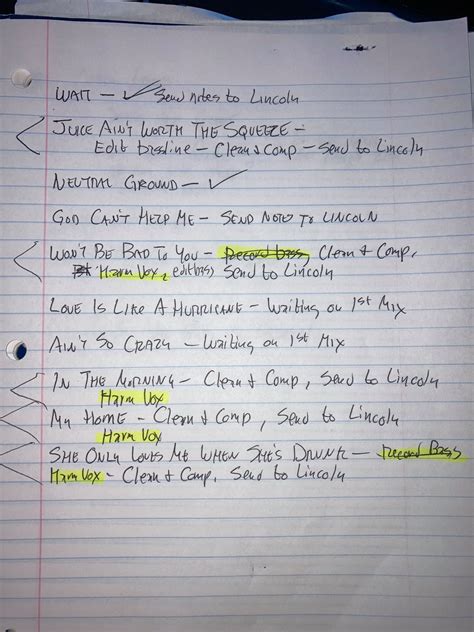 WAIT – ✓ Send notes to Lincoln
JUICE AIN'T WORTH THE SQUEEZE –
Edit bassline – Clean & Comp – Send to Lincoln
NEUTRAL GROUND – ✓
GOD CAN'T HELP ME – SEND NOTES TO LINCOLN
WON'T BE BAD TO YOU – Record bass Clean & Comp,
Harm Vox, edit bass Send to Lincoln
LOVE IS LIKE A HURRICANE – Waiting on 1st MIX
AIN'T SO CRAZY – Waiting on 1st MIX
IN THE MORNING – Clean & Comp, Send to Lincoln
Harm Vox
MY HOME – Clean & Comp, Send to Lincoln
Harm Vox
SHE ONLY LOVES ME WHEN SHE'S DRUNK – Record Bass
Harm Vox – Clean & Comp, Send to Lincoln